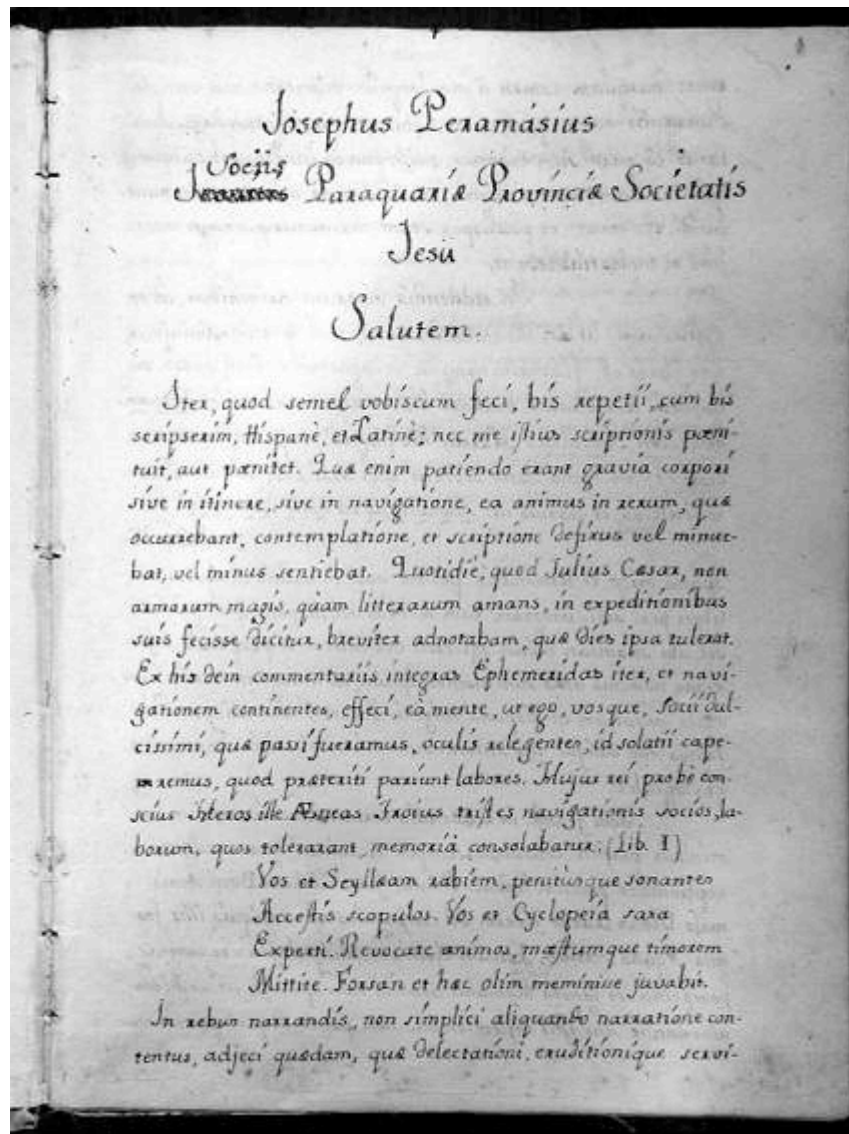 Josephus Peramásius
Socijs
Paraquariæ Provinciæ Societatis
Jesu
Salutem.
Iter, quod semel vobiscum feci, bis repetii, cum bis
scripserim, Hispanè, et Latinè; nec me istius scriptionis pœni-
tuit, aut pœnitet. Quæ enim patiendo erant gravia corpori
sive in itinere, sive in navigatione, ea animus in rerum, quæ
occurrebant, contemplatione, et scriptione defixus vel minue-
bat, vel minus sentiebat. Quotidie, quod Julius Cæsar, non
armorum magis, quàm litterarum amans, in expeditionibus
suis fecisse dicitur, breviter adnotabam, quæ dies ipsa tulerat.
Ex his dein commentariis integras Ephemeridas iter, et navi-
gationem continentes, effeci, eâ mente, ut ego, vosque, socii dul-
cissimi, quæ passi fueramus, oculis relegentes, id solatii cape-
remus, quod præteriti pariunt labores. Hujus rei probè con-
scius Heros ille Æneas Troius tristes navigationis socios, la-
borum, quos tolerarant, memoriâ consolabatur: (Lib. I)
Vos et Scyllæam rabiem, penitùsque sonantes
Accestis scopulos. Vos et Cyclopeia saxa
Experti. Revocate animos, mæstumque timorem
Mittite. Forsan et hæc olim meminisse juvabit.
In rebus narrandis, non simplici aliquando narratione con-
tentus, adjeci quædam, quæ delectationi, eruditionique servi-